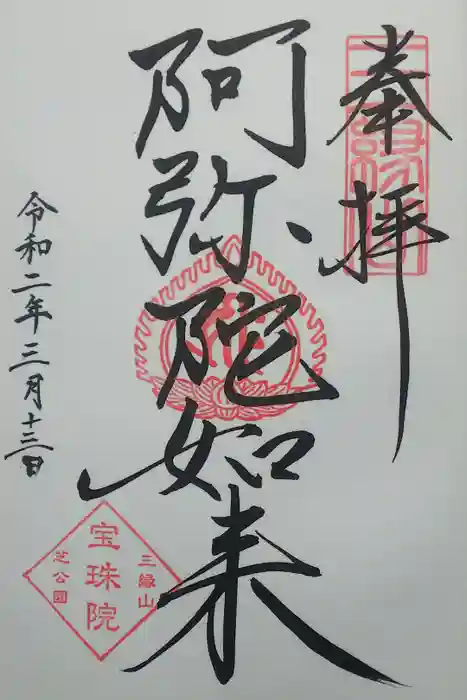 奉拝
三縁山
阿弥陀如来
令和二年三月十三日
三縁山
宝珠院
芝公園